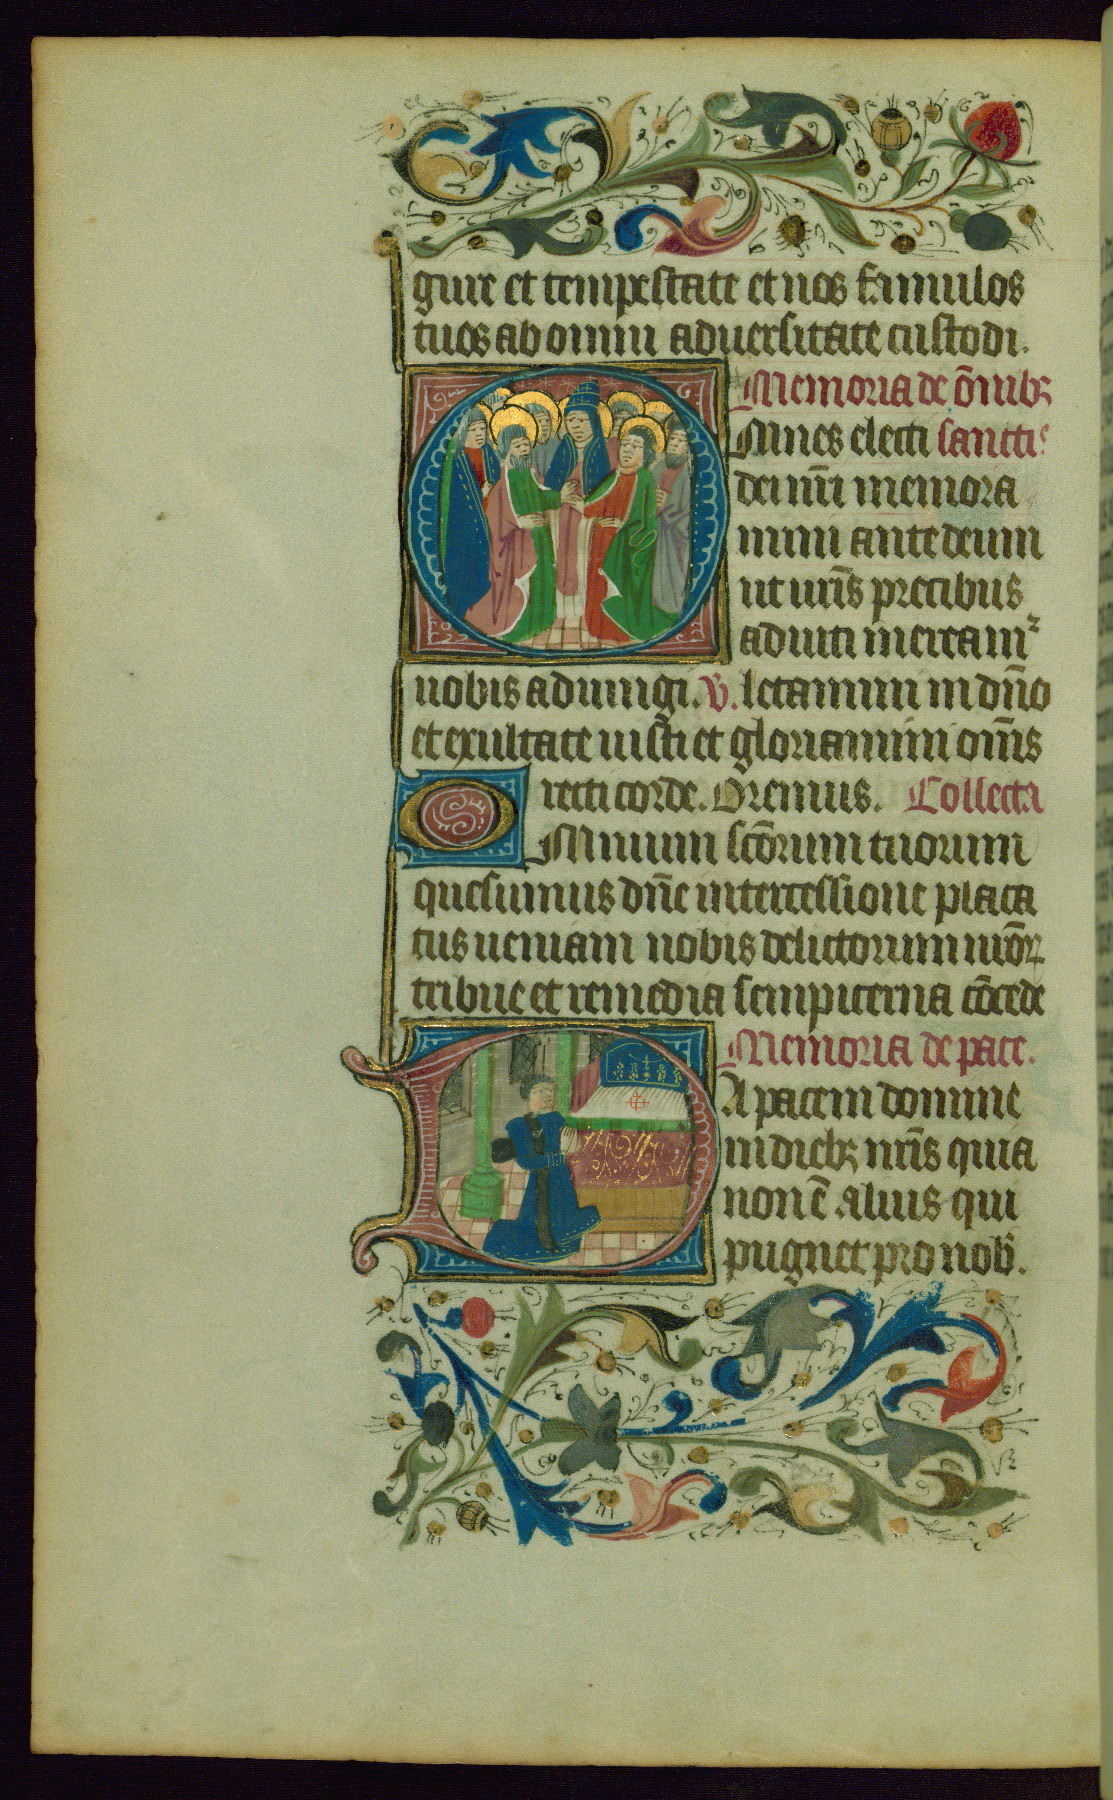 gure et tempestate et nos famulos
tuos ab omni aduersitate custodi.
Memoria de om̄ibꝫ
Omnes electi sancti
dei nr̄i memora
mini ante deum
ut ur̄is precibus
adiuti mereamꝛ
nobis adiungi. V. letamini in dn̄o
et exultate iusti et gloriamini om̄s
recti corde. Oremus. Collecta
Omnium sc̄orum tuorum
quesumus dn̄e intercessione placa
tus ueniam nobis delictorum nr̄oꝝ
tribue et remedia sempiterna cōcede
Memoria de pace.
Da pacem domine
in diebꝫ nr̄is quia
non ē alius qui
pugnet pro nob̄.